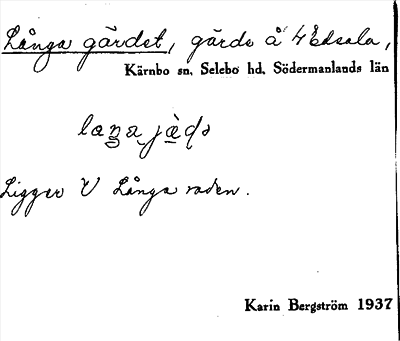 Långa gärdet, gärde å Vedsala,
Kärnbo sn, Selebo hd, Södermanlands län
Ligger V Långa raden.
Karin Bergström 1937